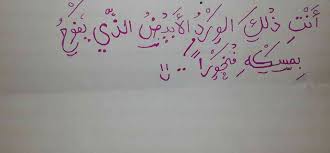 أَنْتِ ذَلِكَ الوَرْدُ الأَبْيَضُ الذَّي يَفُوْحُ
بِمِسْكِهِ فُخُوْرَاً ..